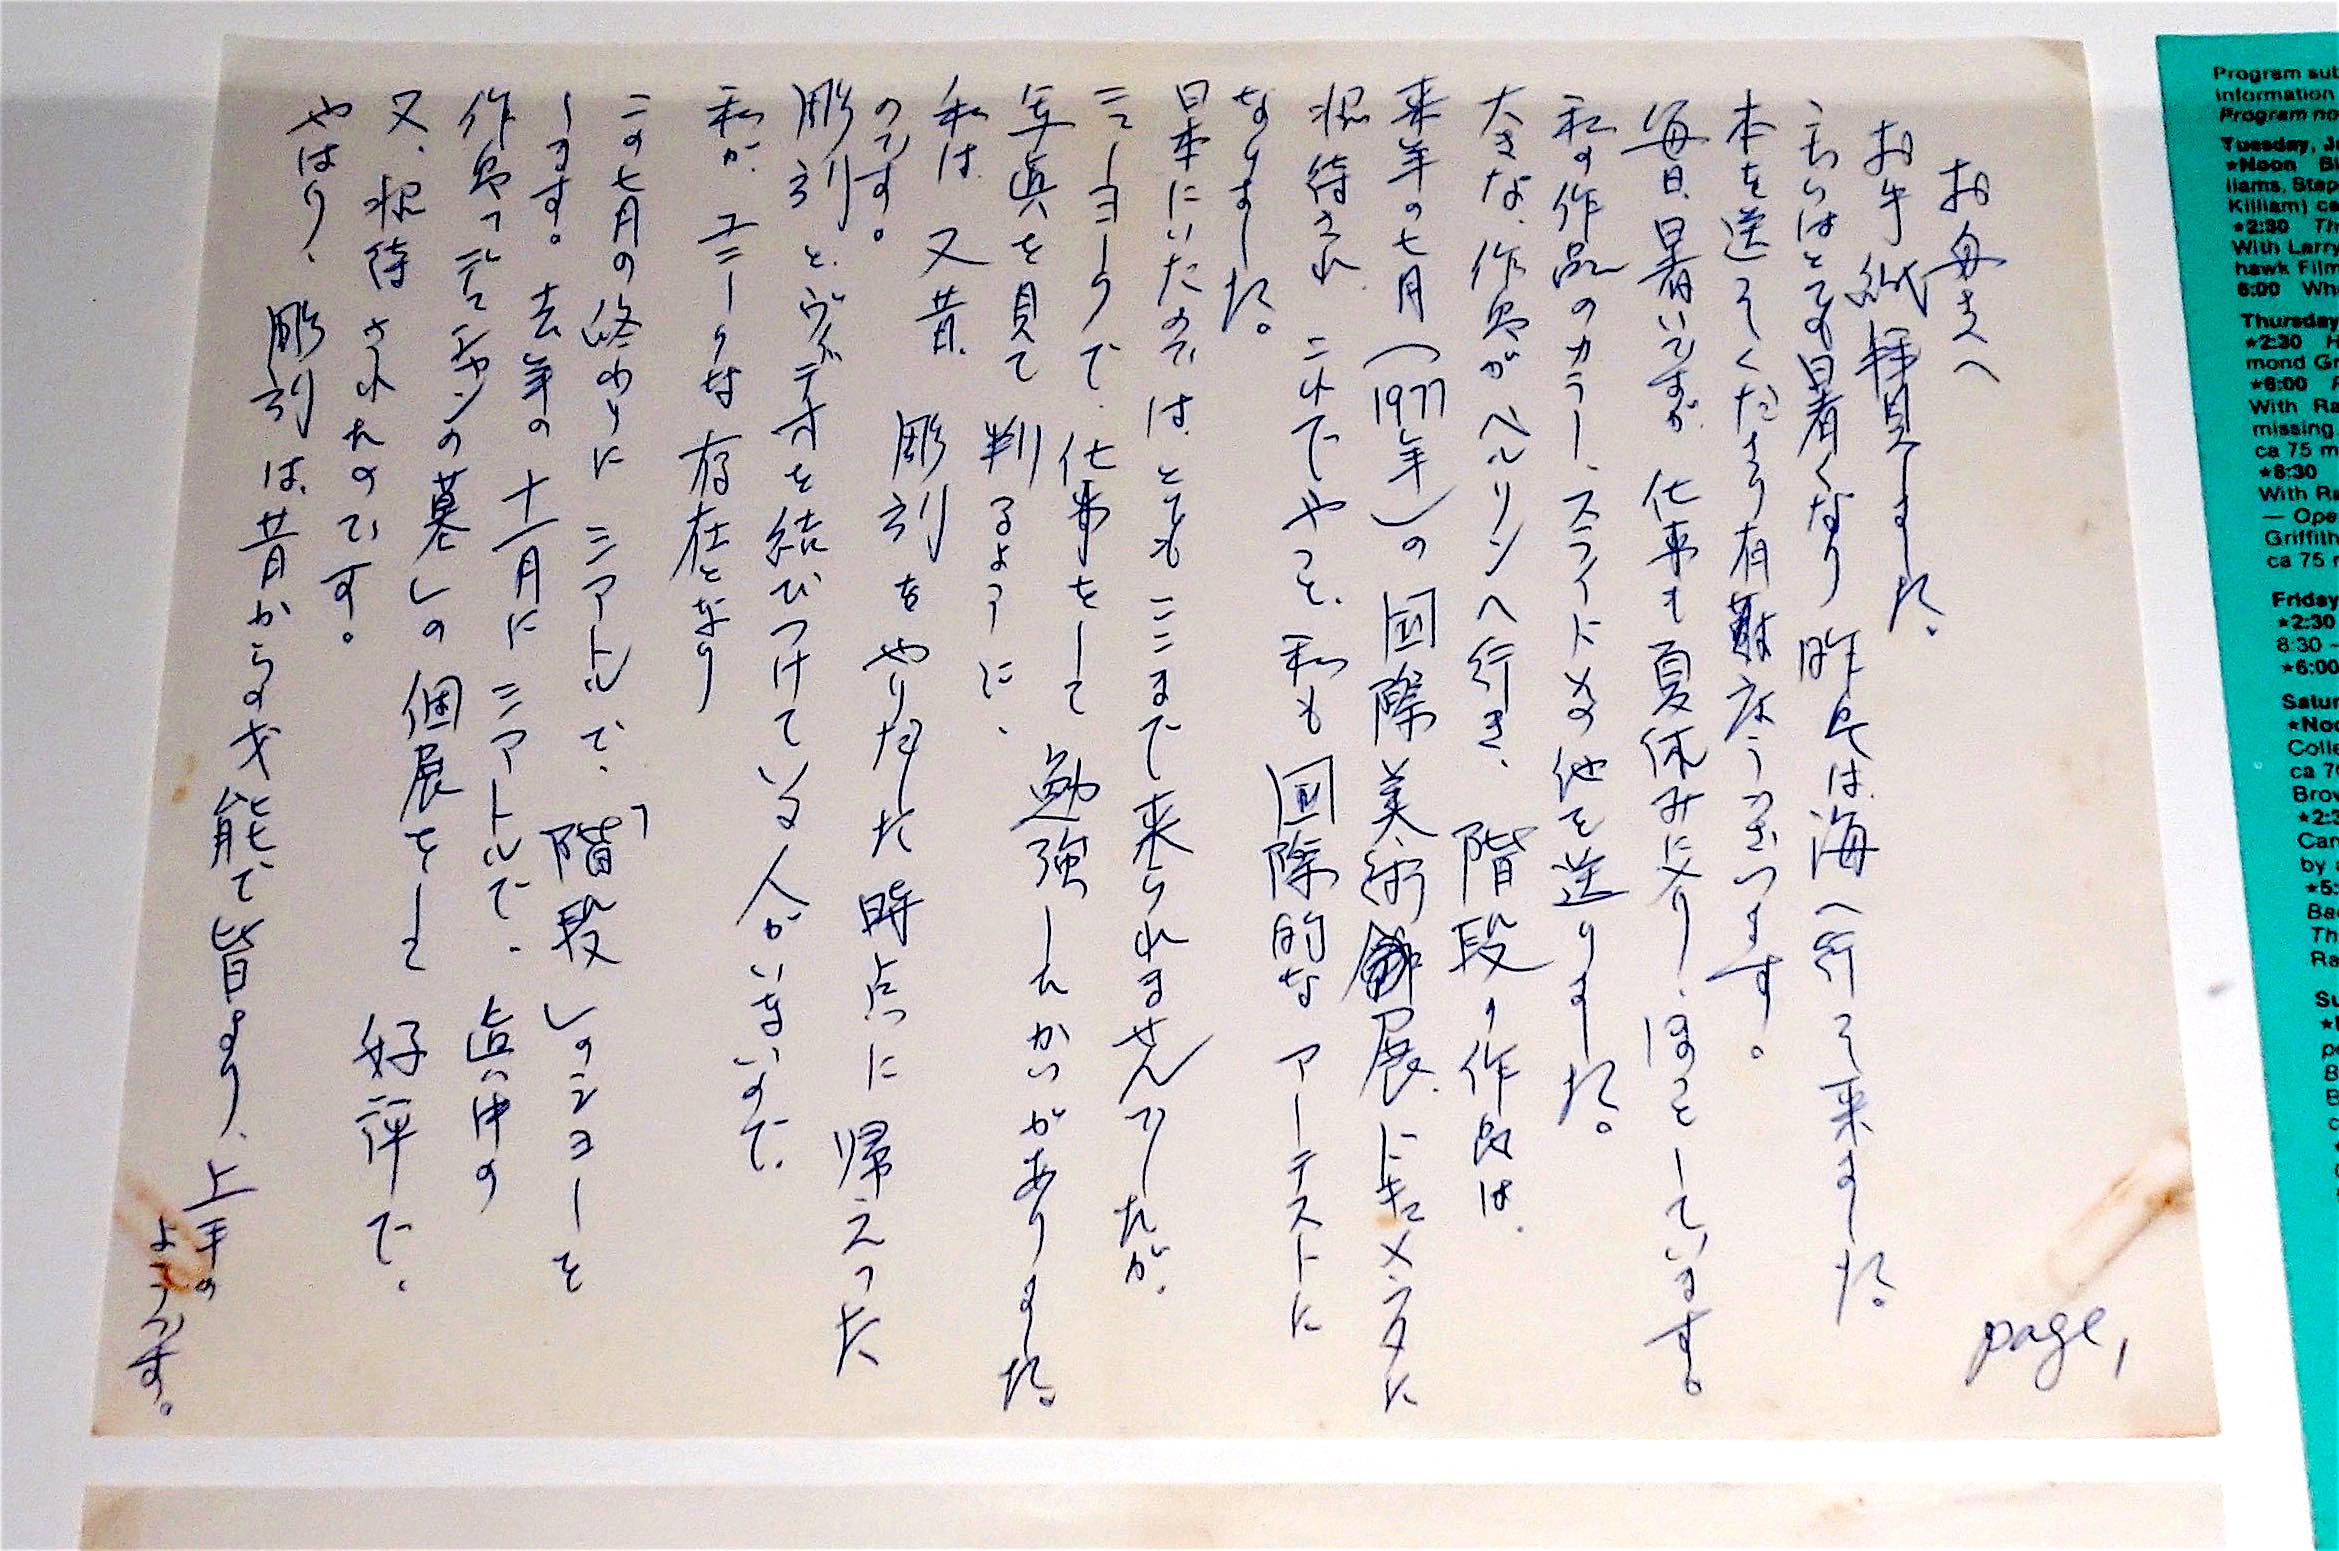 page, 1
お母さんへ
お手紙拝見しました。
こちらはとても暑くなり 昨日は海へ行って来ました。
本を送ってくださり有難うございます。
毎日暑いですが、仕事も夏休みに入り、ほっとしています。
私の作品のカラー、スライドその他を送りました。
大きな作品がベルリンへ行き、階段の作品は、
来年の七月（1977年）の国際美術展、ドキュメンタに
招待され これでやっと、私も国際的なアーティストに
なりました。
日本にいたのでは、とてもここまで来られませんでしたが、
ニューヨークで、仕事をして 勉強したかいがありました。
写真を見て 判るように、
私は 又昔、彫刻をやりだした時点に帰えった
のです。
彫刻と、ヴィデオを結びつけている人がいないので、
私が、ユニークな存在となり
この七月の終わりに シアトルで、「階段」のショーを
します。去年の十一月に シアトルで、真中の
作品「デュシャンの墓」の個展をして 好評で、
又、招待されたのです。
やはり、彫刻は、昔からの才能で皆より、上手の
ようです。
Program
information
Program
Tuesday,
★Noon
liams,
Killiam) ca
★2:30
With Larry
hawk Film
6:00
Thursday
★2:30
mond
★6:00
With Ra
missing
★8:30
With Ra
— Ope
Griffith
Friday
★2:30
8:30 –
★6:00
by